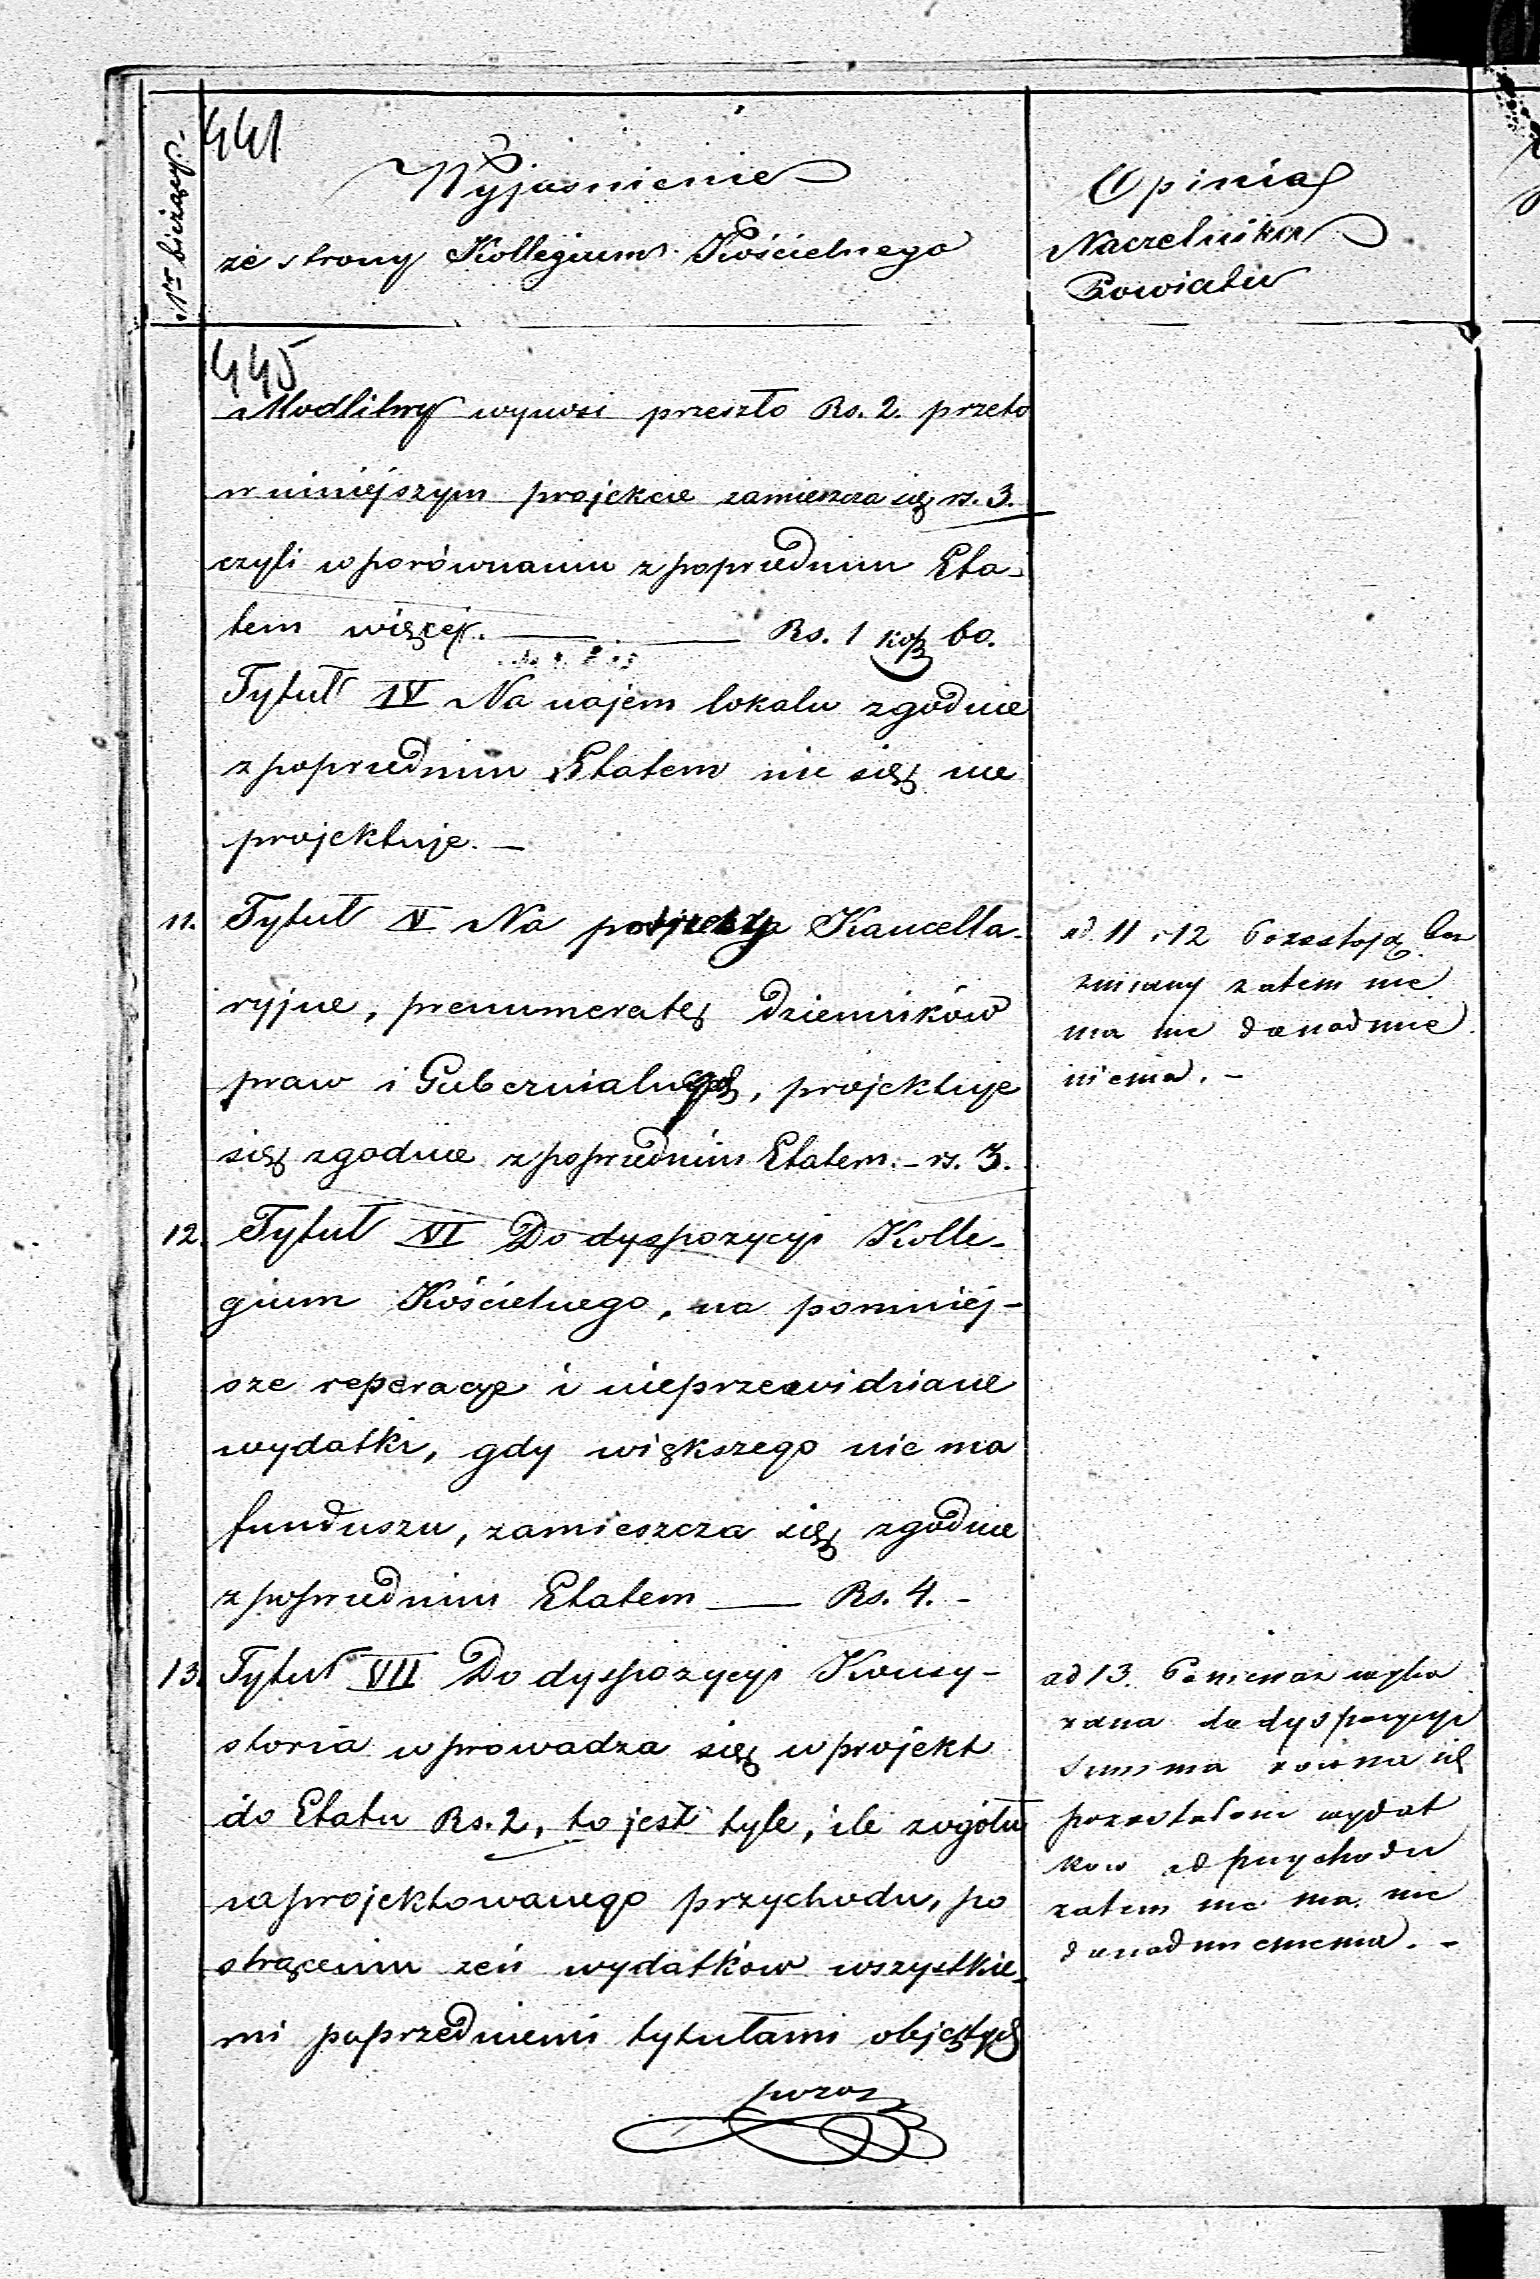 441
Nr bieżący.
Wyjaśnienie
ze strony Kollegium Kościelnego
Opinia
Naczelnika
Powiatu
445
Modlitwy wynosi przeszło Rs. 2. przeto
w niniejszym projekcie zamieszcza się rs. 3.
czyli w porównaniu z poprzednim Eta-
tem więcej. — — Rs. 1 kop 60.
Tytuł IV Na najem lokalu zgodnie
z poprzednim Etatem nic się nie
projektuje. —
11. Tytuł V Na Kancella-
ryjne, prenumeratę Dzienników
praw i Gubernialnego, projektuje
się zgodnie z poprzednim Etatem. – rs. 3.
12. Tytuł VI Do dyspozycyi Kolle-
gium Kościelnego, na pomniej-
sze reperacye i nieprzewidziane
wydatki, gdy większego nie ma
funduszu, zamieszcza się zgodnie
z poprzednim Etatem — Rs. 4. -
13. Tytuł VII Do dyspozycyi Konsy-
storia wprowadza się w projekt
do Etatu Rs. 2, to jest tyle, ile z ogółu
naprojektowanego przychodu, po
strąceniu zeń wydatków wszystkie-
mi poprzedniemi tytułami objętych
pozos
ad 11 i 12 Pozostają bez
zmiany zatem nie
ma nic do nadmie
nienia. –
ad 13. Ponieważ wyka
zana do dyspozycyi
summa równa się
pozostałem wydat
kow od przychodu
zatem nie ma nic
do nadmienienia. –